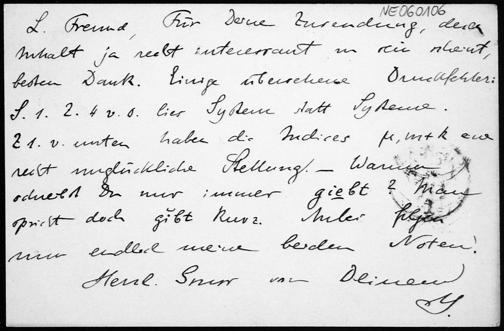 NE060106
L. Freund, Für Deine Zusendung, deren
Inhalt ja recht interessant zu sein scheint,
besten Dank. Einige übersehene Druckfehler:
S. 1. Z. 4 v. o. lies System statt Systeme.
Z 1. v. unten haben die Indices μ, m+k eine
recht unglückliche Stellung! – Warum
schreibst Du nur immer giebt? Man
spricht doch gibt kurz. Anbei folgen
nun endlich meine beiden Noten!
Herzl. Gruss von Deinem